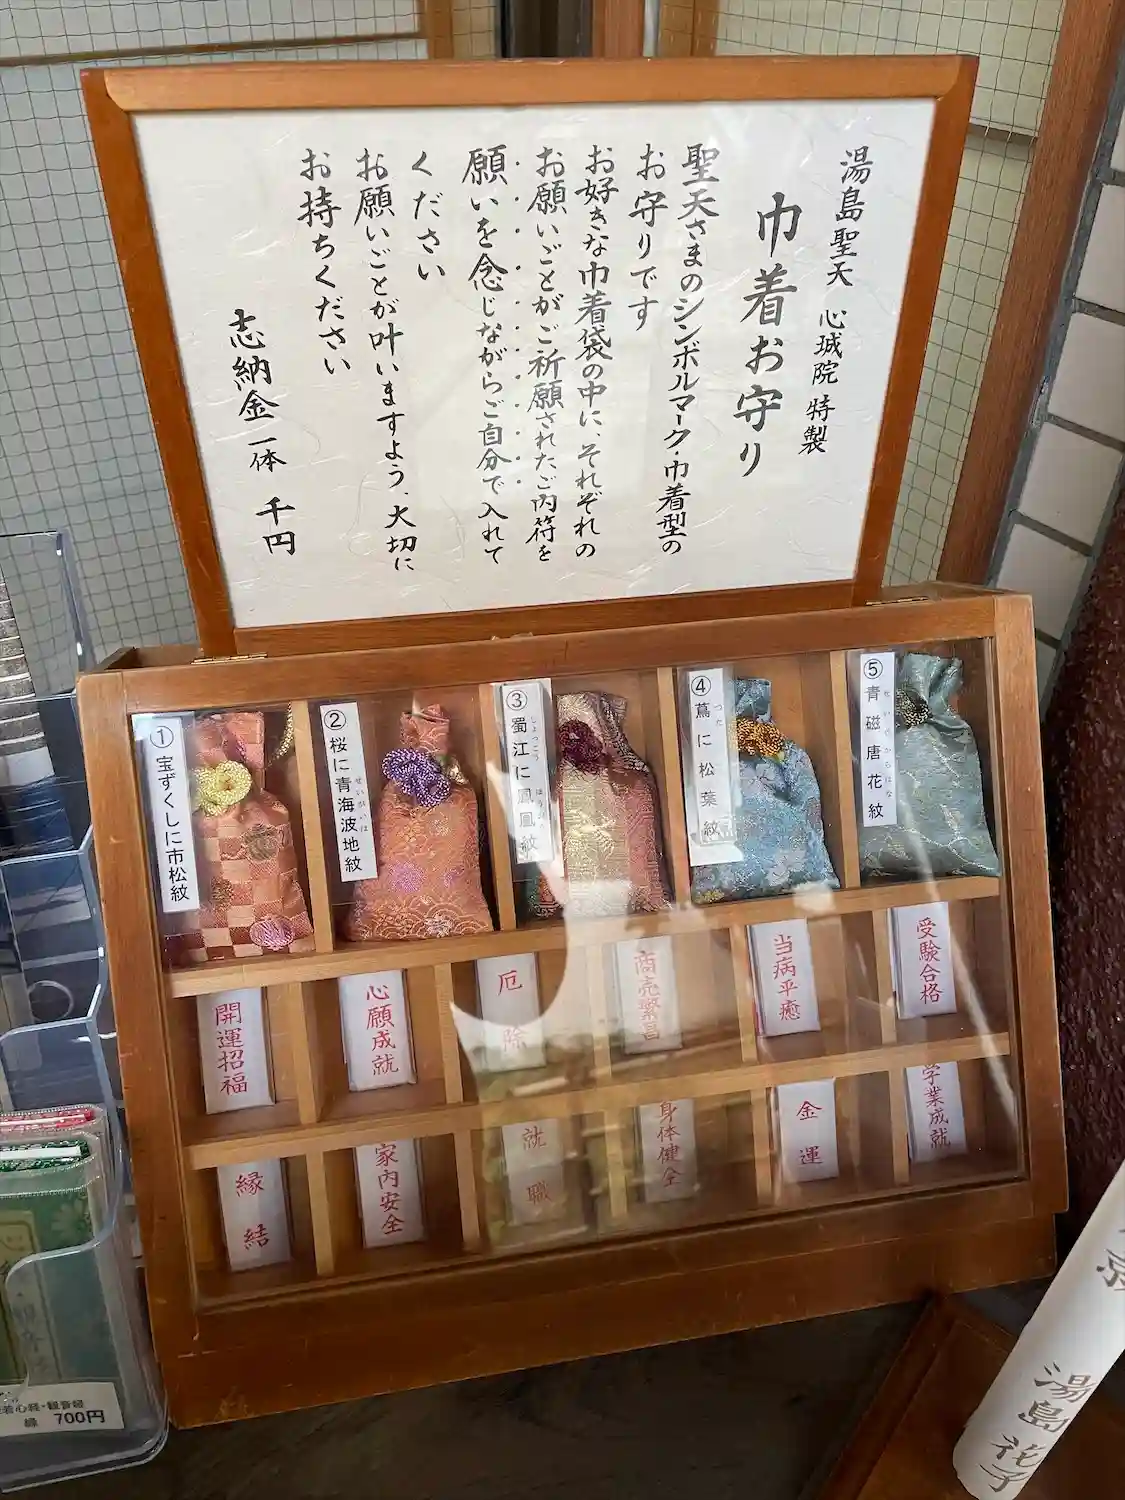 湯島聖天 心城院 特製
巾着お守り
聖天さまのシンボルマーク・巾着型の
お守りです
お好きな巾着袋の中に、それぞれの
お願いごとがご祈願されたご内符を
願いを念じながらご自分で入れて
ください
お願いごとが叶いますよう、大切に
お持ちください
志納金 一体 千円
①宝ずくしに市松紋
②桜に青海波地紋
せいがいは
③蜀江に鳳凰紋
しょっこう
ほうおう
④蔦に松葉紋
つた
⑤青磁唐花紋
せいじからはな
開運招福
心願成就
厄除
商売繁昌
当病平癒
受験合格
縁結
家内安全
就職
身体健全
金運
学業成就
心経・観音経
700円
湯島花子